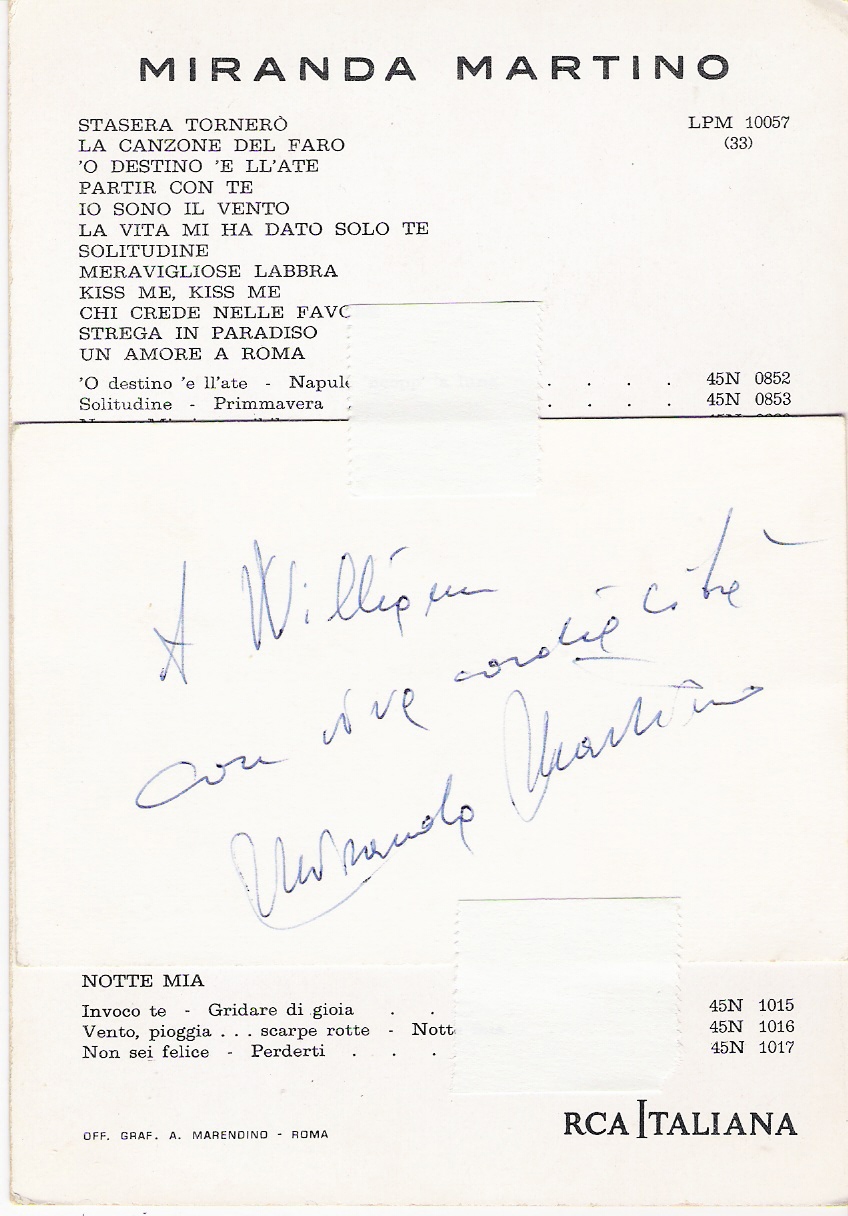 MIRANDA MARTINO
STASERA TORNERÒ
LPM 10057
LA CANZONE DEL FARO
(33)
'O DESTINO 'E LL'ATE
PARTIR CON TE
IO SONO IL VENTO
LA VITA MI HA DATO SOLO TE
SOLITUDINE
MERAVIGLIOSE LABBRA
KISS ME, KISS ME
CHI CREDE NELLE
STREGA IN PARADISO
UN AMORE A ROMA
'O destino 'e ll'ate - . . . . 45N 0852
Solitudine - Primmavera . . . . . 45N 0853
A William
con viva cordialità
Miranda Martino
NOTTE MIA
Invoco te - Gridare di gioia . . 45N 1015
Vento, pioggia . . . scarpe rotte - 45N 1016
Non sei felice - Perderti . . . 45N 1017
OFF. GRAF. A. MARENDINO - ROMA
RCA ITALIANA